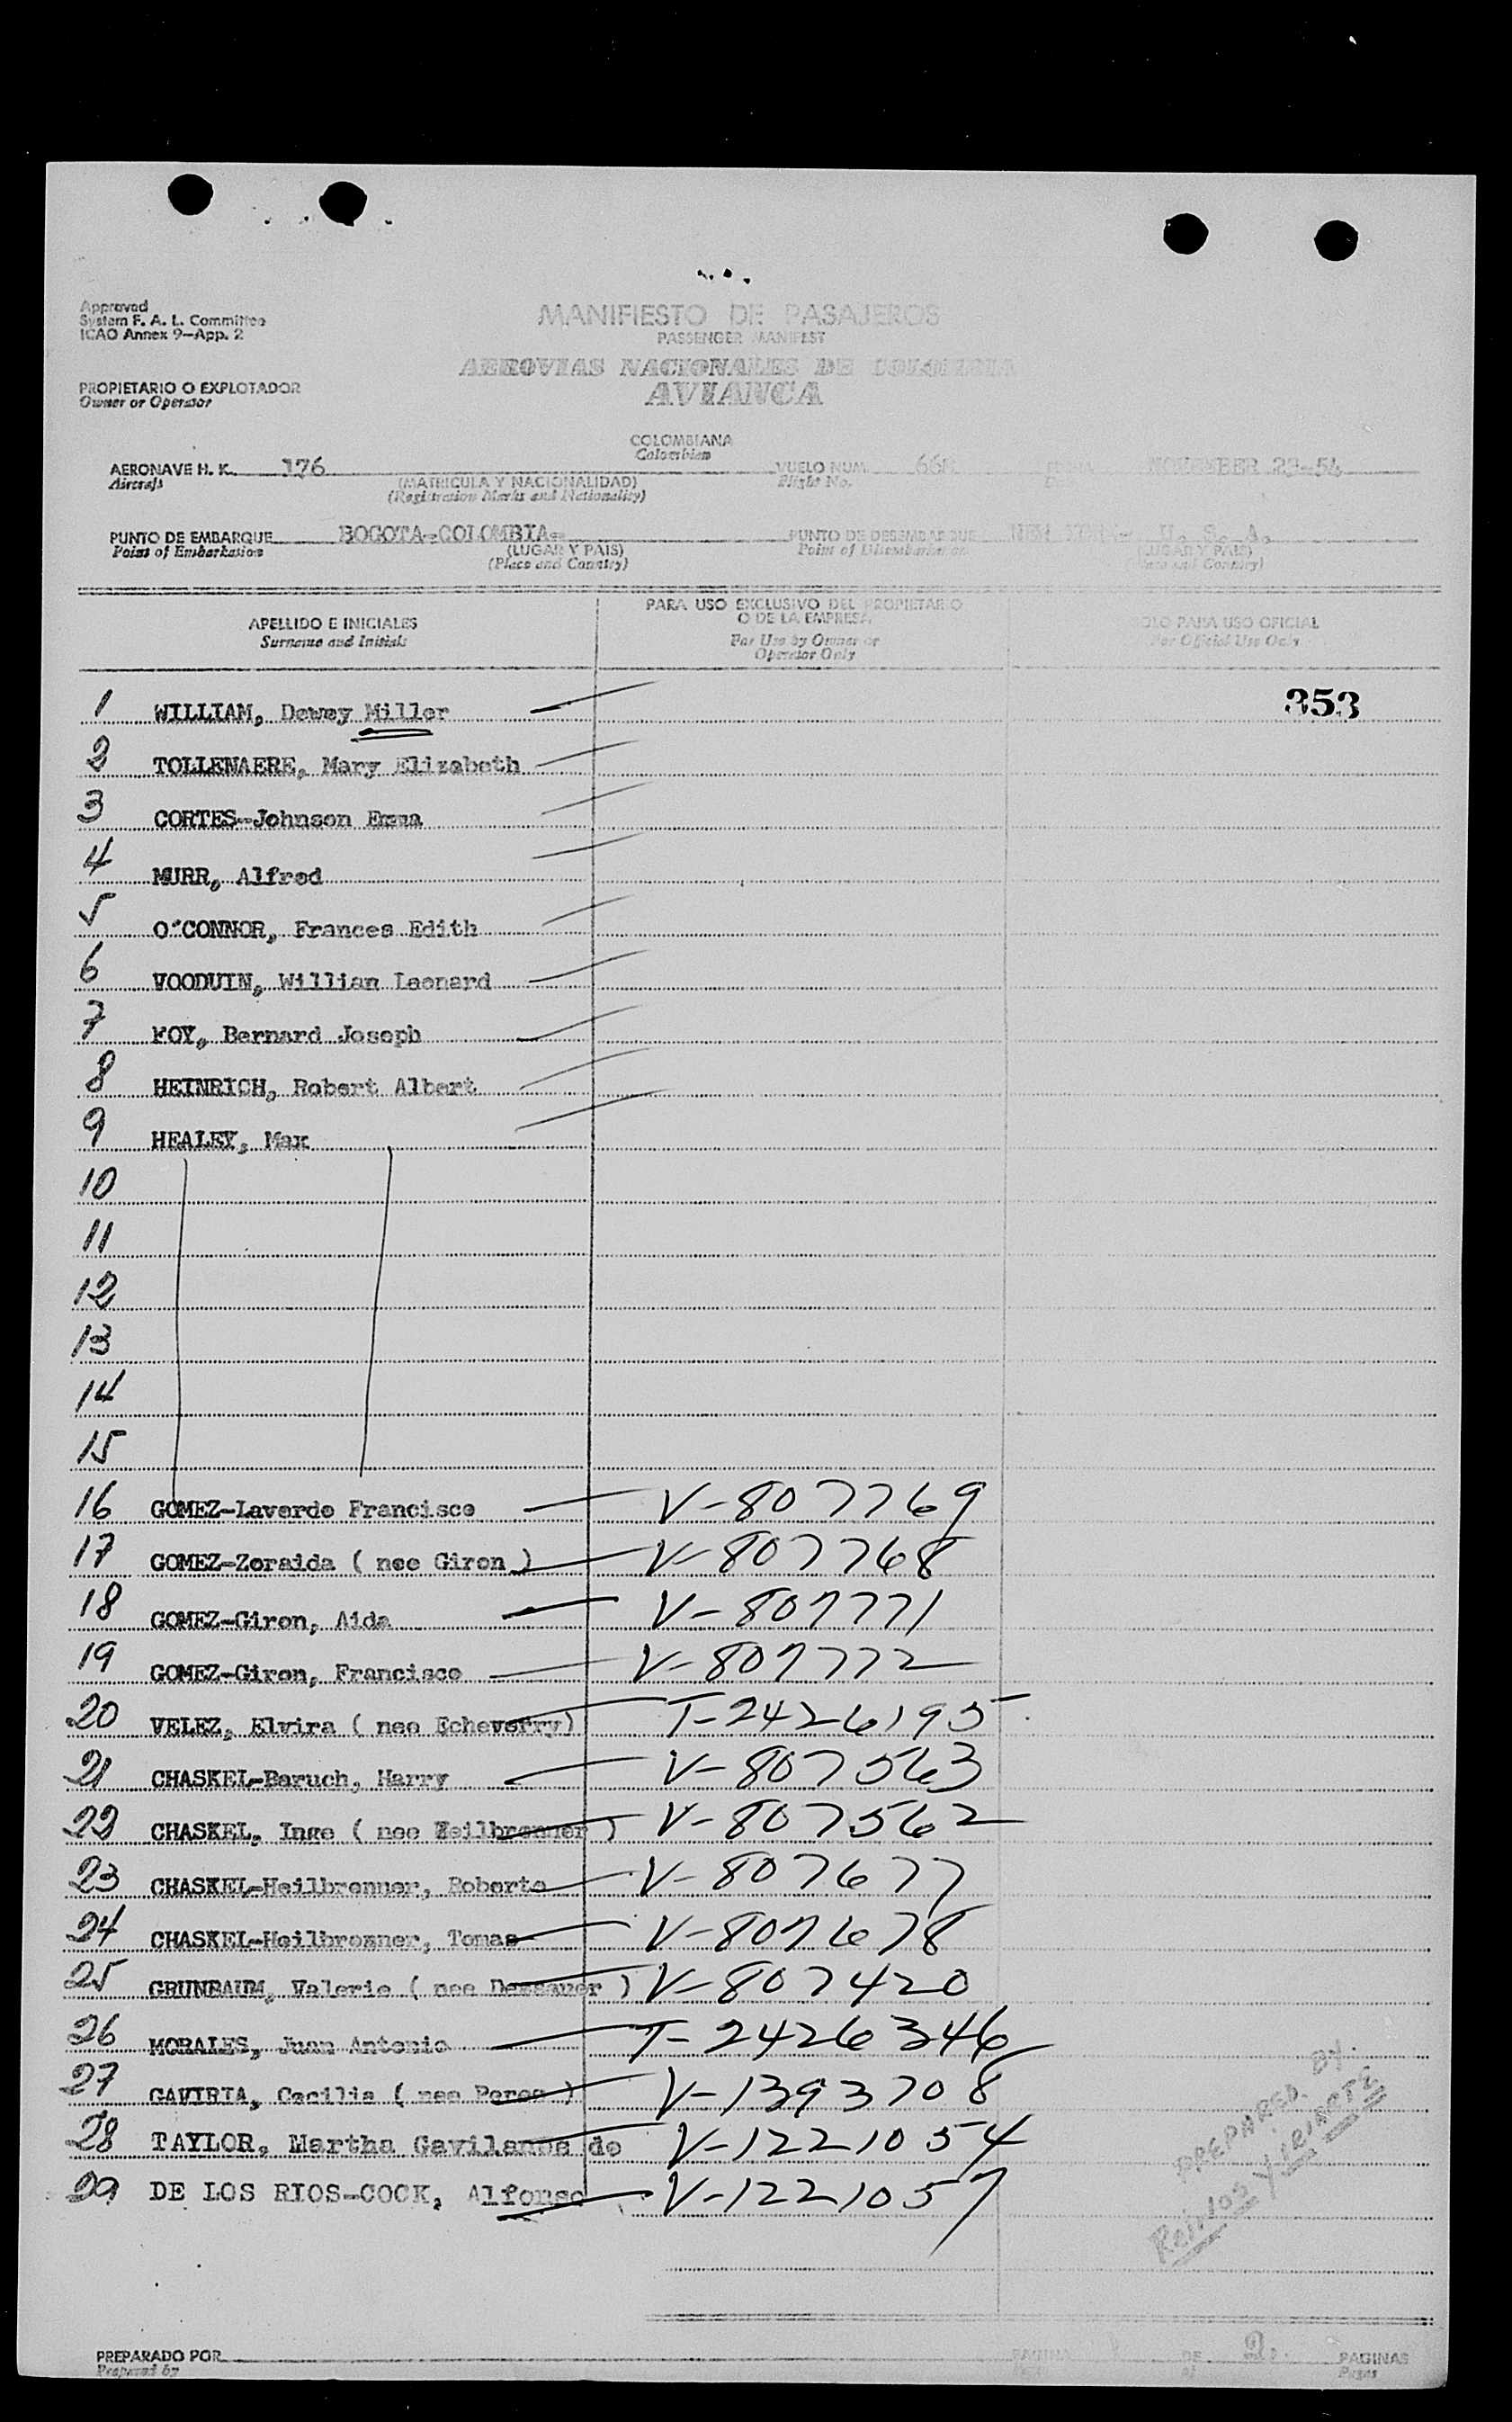 Approved
System F. A. L. Committee
ICAO Annex 9—App. 2
MANIFIESTO DE PASAJEROS
PASSENGER MANIFEST
AEROVIAS NACIONALES DE COLOMBIA
AVIANCA
PROPIETARIO O EXPLOTADOR
Owner or Operator
COLOMBIANA
Colombian
AERONAVE H. K. 176 VUELO NUM. NOVEMBER 23-54
Aircraft (MATRICULA Y NACIONALIDAD) Flight No.
(Registration Marks and Nationality)
PUNTO DE EMBARQUE BOGOTA-COLOMBIA- PUNTO DE DESEMBARQUE NEW YORK- U. S. A.
Point of Embarkation (LUGAR Y PAIS) Point of Disembarkation (LUGAR Y PAIS)
(Place and Country) (Place and Country)
APELLIDO E INICIALES PARA USO EXCLUSIVO DEL PROPIETARIO SOLO PARA USO OFICIAL
Surname and Initials O DE LA EMPRESA For Official Use Only
For Use by Owner or
Operator Only
1 WILLIAM, Dewey Miller 353
2 TOLLENAERE, Mary Elizabeth
3 CORTES-Johnson Emma
4 MURR, Alfred
5 O'CONNOR, Frances Edith
6 VOODUIN, Willian Leonard
7 FOY, Bernard Joseph
8 HEINRICH, Robert Albert
9 HEALEY, Max
10
11
12
13
14
15
16 GOMEZ-Laverde Francisco V-807769
17 GOMEZ-Zoraida ( nee Giron ) V-807768
18 GOMEZ-Giron, Aida V-807771
19 GOMEZ-Giron, Francisco V-807772
20 VELEZ, Elvira ( nee Echeverry) T-2426195
21 CHASKEL-Baruch, Harry V-807563
22 CHASKEL, Inge ( nee Heilbronner ) V-807562
23 CHASKEL-Heilbronner, Roberto V-807677
24 CHASKEL-Heilbronner, Tomas V-807678
25 GRUNBAUM, Valerie ( nee Dessauer ) V-807420
26 MORALES, Juan Antonio T-2426346
27 GAVIRIA, Cecilia ( nee Perez ) V-1393708
28 TAYLOR, Martha Gavilanes de V-1221054
29 DE LOS RIOS-COCK, Alfonso V-1221057
PREPARED BY.
Reinos Y IRIARTE
PREPARADO POR PAGINA DE 2. PAGINAS
Prepared by of Pages